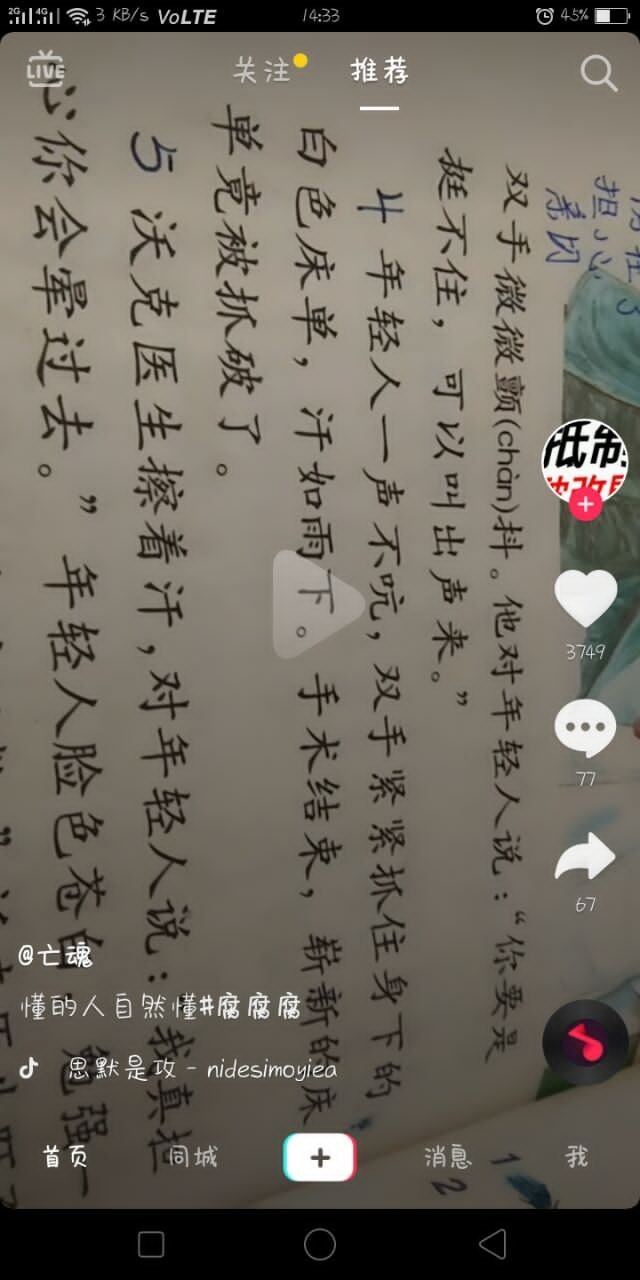 3 KB/s VoLTE 14:33 45%
LIVE
关注
推荐
担心
双手微微颤(chàn)抖。他对年轻人说：“你要是
挺不住，可以叫出声来。”
4 年轻人一声不吭，双手紧紧抓住身下的
白色床单，汗如雨下。手术结束，崭新的床
单竟被抓破了。
5 沃克医生擦着汗，对年轻人说：“我真担
心你会晕过去。”年轻人脸色苍白，勉强一
抵制
3749
77
67
@亡魂
懂的人自然懂#腐腐腐
思默是攻 - nidesimoyiea
首页
同城
消息
我
1
2